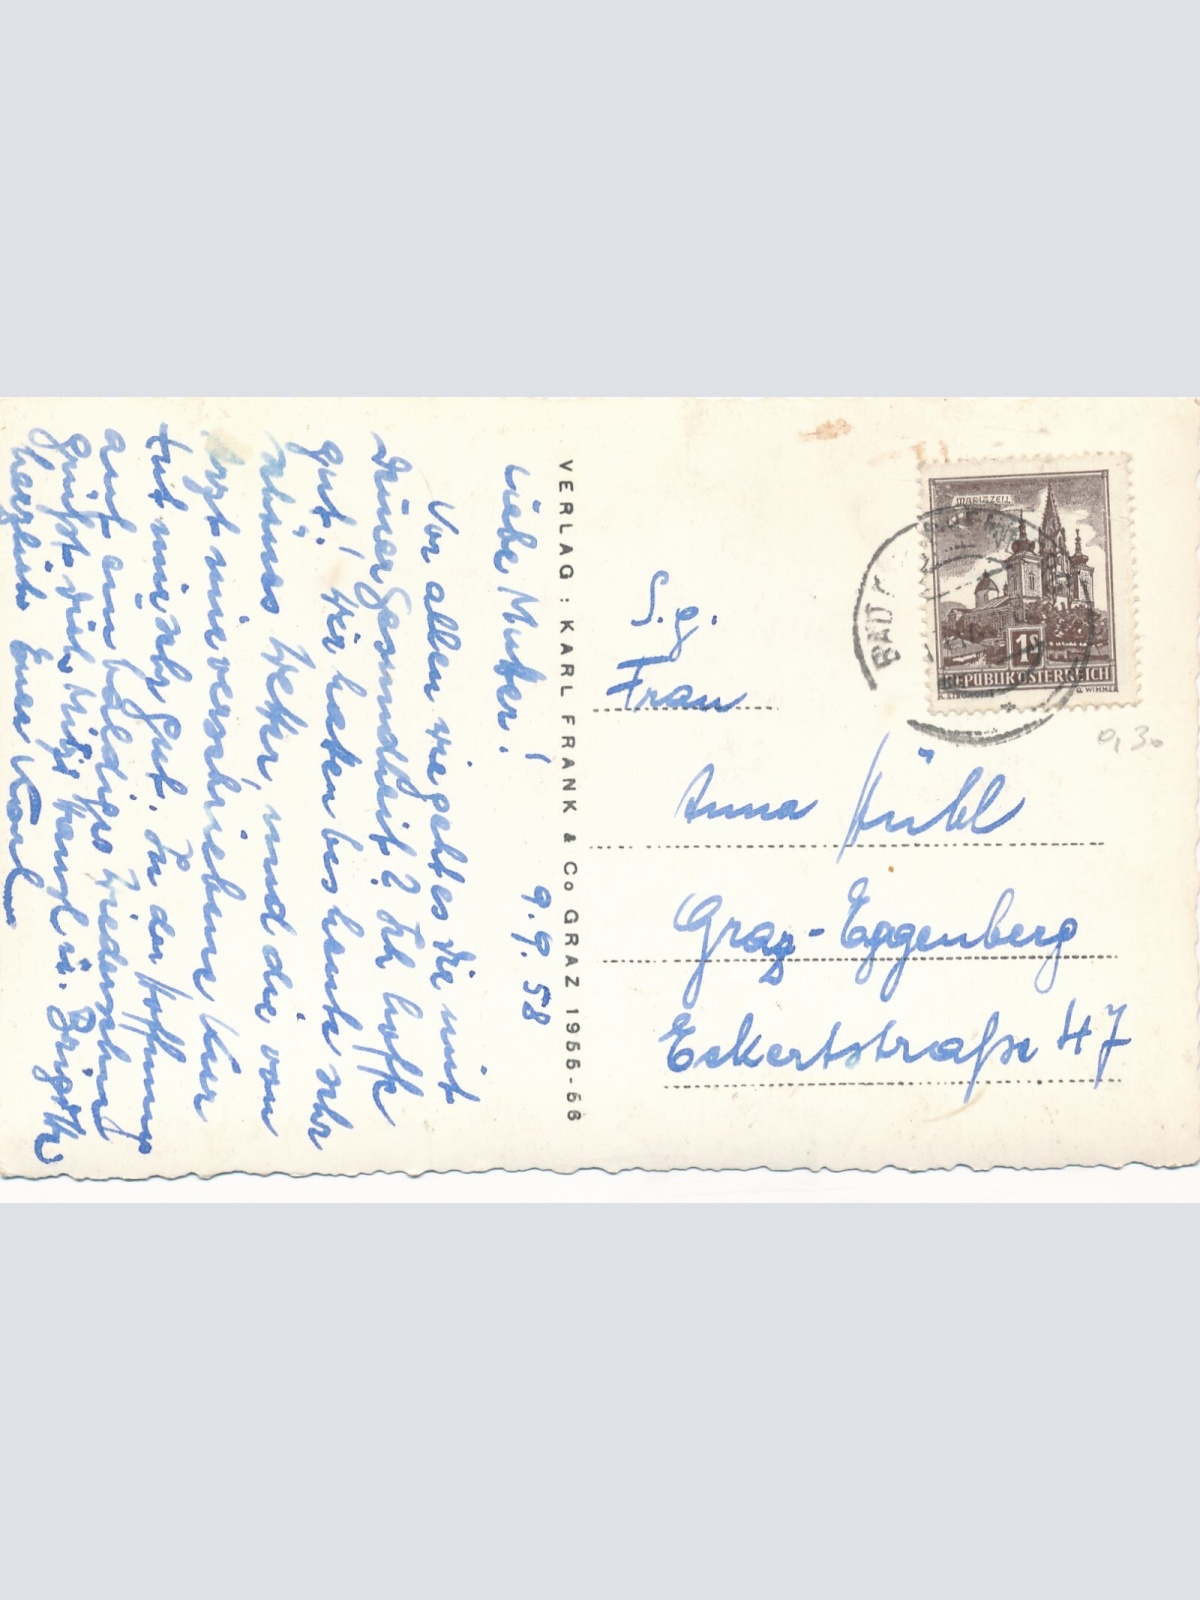 9.9.58
Liebe Mutter!
Vor allem wie geht es Dir mit
Deiner Gesundheit? Ich hoffe
gut! Wir hatten bis heute sehr
schönes Wetter, und die vom
Arzt mir verschriebene Kur
tut mir sehr gut. In der Hoffnung
auf ein baldiges Wiedersehen
grüßt Dich, Mitzi, Hansl u. Brigitte
herzlich Euer Karl
VERLAG: KARL FRANK & Co GRAZ 1955-56
S.g.
Frau
Anna Hübl
Graz-Eggenberg
Eckertstraße 47
MARIAZELL
1S
REPUBLIK ÖSTERREICH
G. WIMMER
BAD
0,30